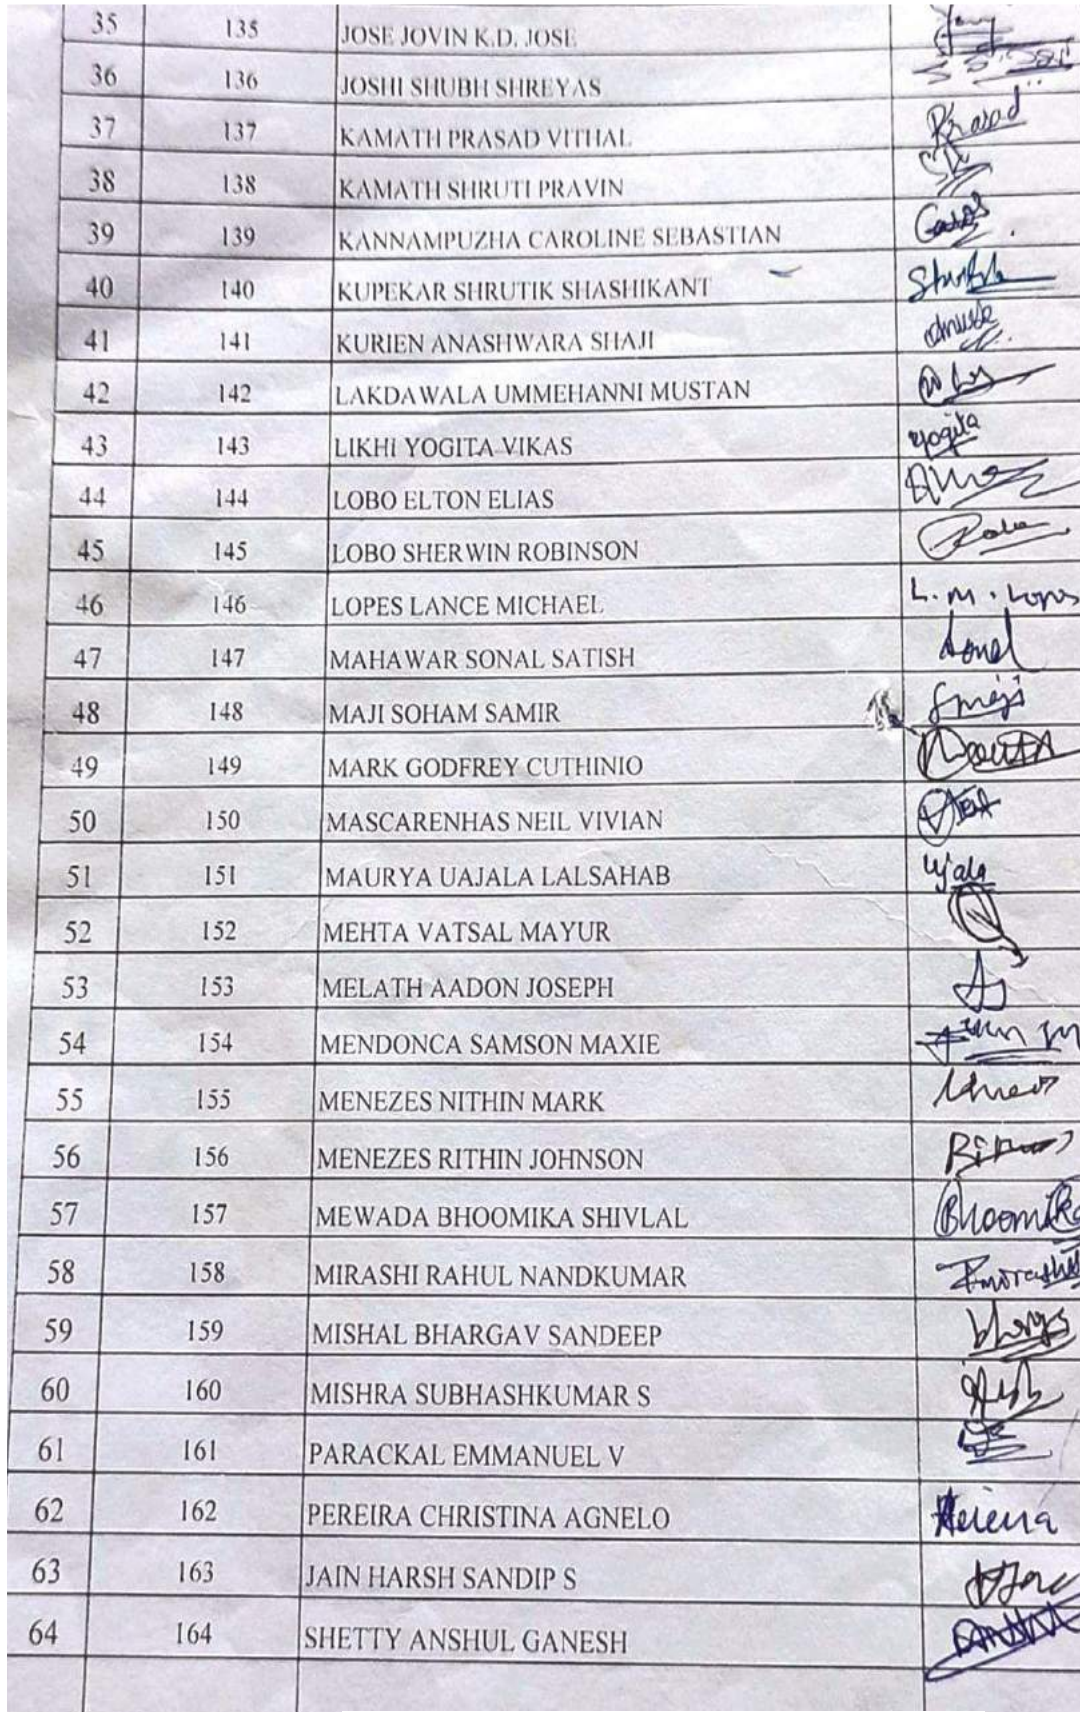 35 135 JOSE JOVIN K.D. JOSE
36 136 JOSHI SHUBH SHREYAS
37 137 KAMATH PRASAD VITHAL Prasad
38 138 KAMATH SHRUTI PRAVIN
39 139 KANNAMPUZHA CAROLINE SEBASTIAN
40 140 KUPEKAR SHRUTIK SHASHIKANT
41 141 KURIEN ANASHWARA SHAJI
42 142 LAKDAWALA UMMEHANNI MUSTAN
43 143 LIKHI YOGITA VIKAS yogita
44 144 LOBO ELTON ELIAS
45 145 LOBO SHERWIN ROBINSON
46 146 LOPES LANCE MICHAEL L. M. Lopes
47 147 MAHAWAR SONAL SATISH Sonal
48 148 MAJI SOHAM SAMIR
49 149 MARK GODFREY CUTHINIO
50 150 MASCARENHAS NEIL VIVIAN
51 151 MAURYA UAJALA LALSAHAB Ujala
52 152 MEHTA VATSAL MAYUR
53 153 MELATH AADON JOSEPH
54 154 MENDONCA SAMSON MAXIE
55 155 MENEZES NITHIN MARK
56 156 MENEZES RITHIN JOHNSON
57 157 MEWADA BHOOMIKA SHIVLAL Bhoomika
58 158 MIRASHI RAHUL NANDKUMAR
59 159 MISHAL BHARGAV SANDEEP
60 160 MISHRA SUBHASHKUMAR S
61 161 PARACKAL EMMANUEL V
62 162 PEREIRA CHRISTINA AGNELO
63 163 JAIN HARSH SANDIP S
64 164 SHETTY ANSHUL GANESH